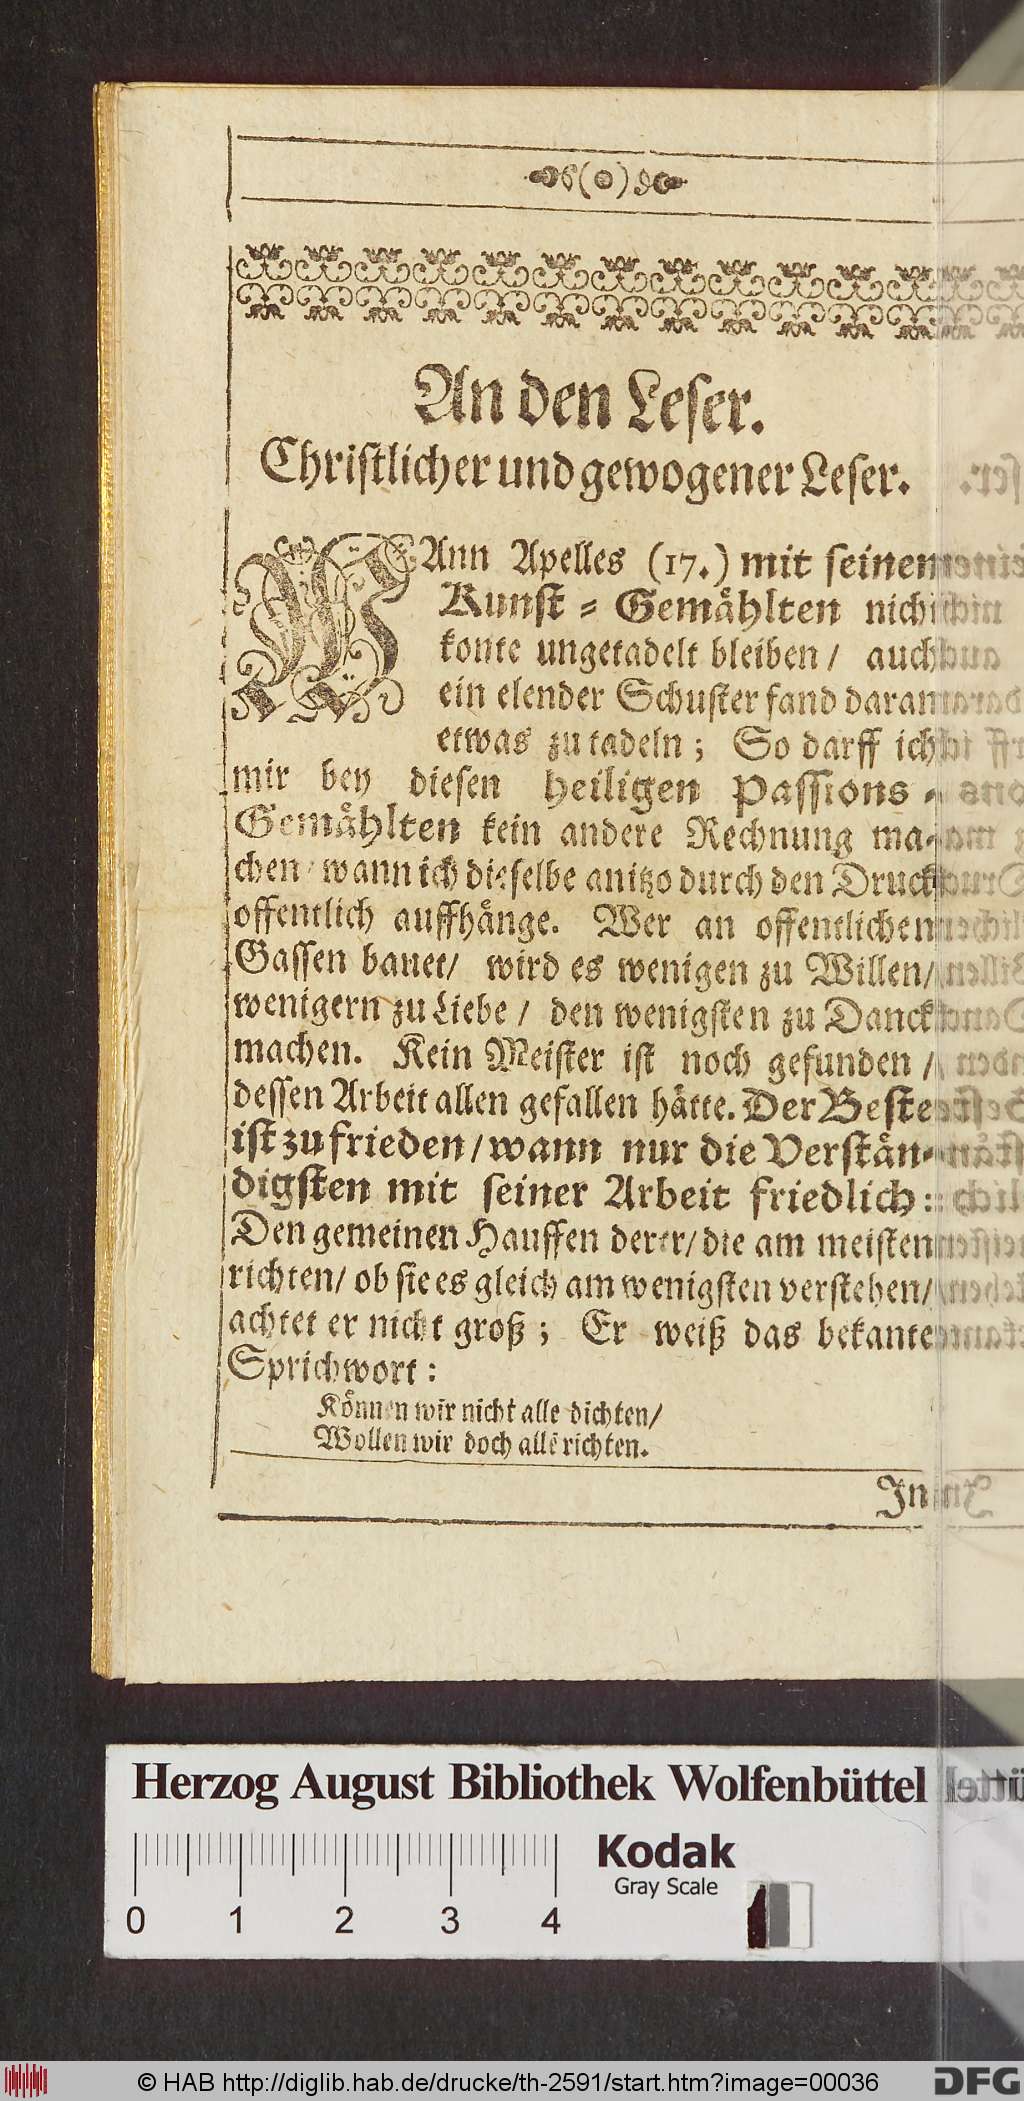 (o)
An den Leser.
Christlicher und gewogener Leser.
WAnn Apelles (17.) mit seinem
Kunst-Gemählten nicht
konte ungetadelt bleiben/ auch
ein elender Schuster fand daran
etwas zu tadeln; So darff ich
mir bey diesen heiligen Passions-
Gemählten kein andere Rechnung ma-
chen/ wann ich dieselbe anitzo durch den Druck
offentlich auffhänge. Wer an offentlichen
Gassen bauet/ wird es wenigen zu Willen/
wenigern zu Liebe/ den wenigsten zu Danck
machen. Kein Meister ist noch gefunden/
dessen Arbeit allen gefallen hätte. Der Beste
ist zu frieden/ wann nur die Verstän-
digsten mit seiner Arbeit friedlich:
Den gemeinen Hauffen derer/ die am meisten
richten/ ob sie es gleich am wenigsten verstehen/
achtet er nicht groß; Er weiß das bekante
Sprichwort:
Können wir nicht alle dichten/
Wollen wir doch alle richten.
In
Herzog August Bibliothek Wolfenbüttel
Kodak
Gray Scale
0 1 2 3 4
© HAB http://diglib.hab.de/drucke/th-2591/start.htm?image=00036
DFG